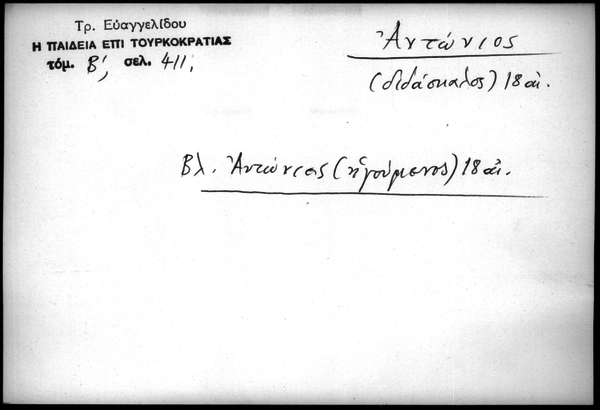 Τρ. Εὐαγγελίδου
Η ΠΑΙΔΕΙΑ ΕΠΙ ΤΟΥΡΚΟΚΡΑΤΙΑΣ
τόμ. Β', σελ. 411,
Ἀντώνιος
(διδάσκαλος) 18 αἰ.
Βλ. Ἀντώνιος (ἡγούμενος) 18 αἰ.